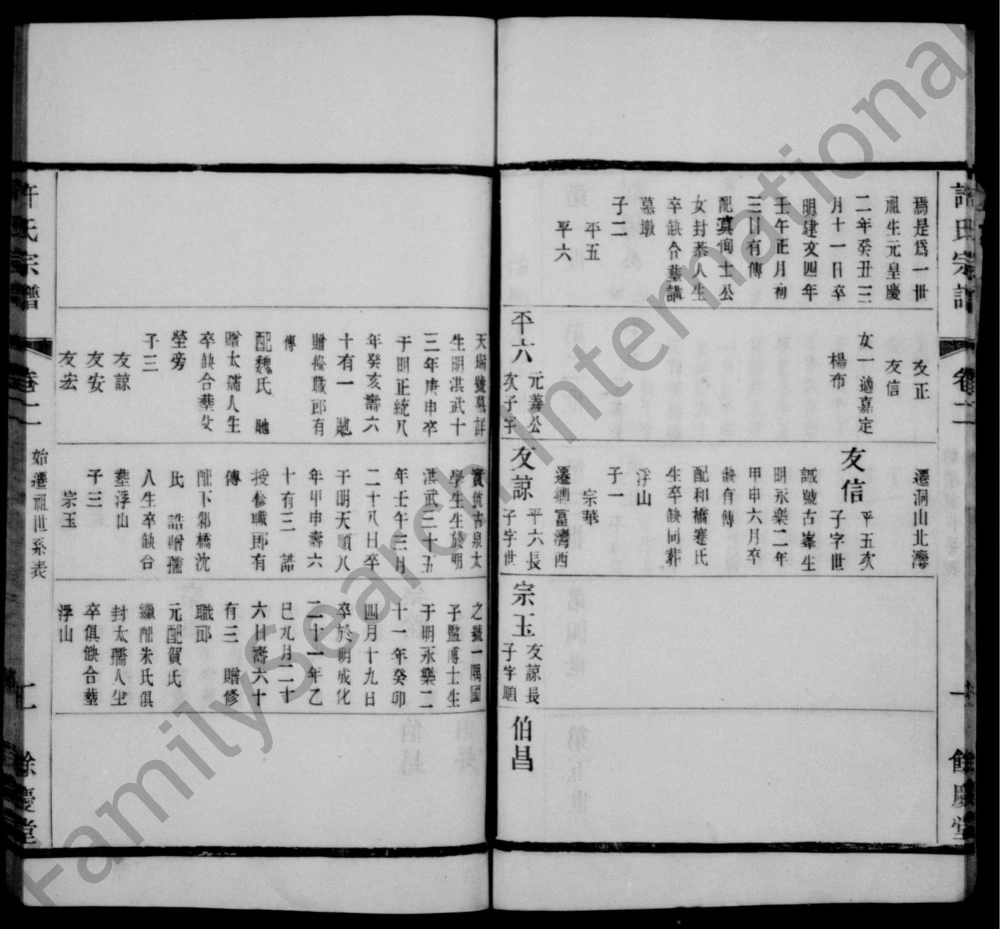 許氏宗譜
卷十二
餘慶堂
焉是爲一世
祖生元皇慶
二年癸丑三
月十一日卒
明建文四年
壬午正月初
三日有傳
配眞伺士公
女封恭人生
卒缺合葬講
墓墩
子二
平五
平六
友正
友信
女一適嘉定
楊布
平六 元善公
次子字
遷洞山北灣
友信 平五次
子字世
誠號古峯生
明永樂二年
甲申六月卒
缺有傳
配和橋蹇氏
生卒缺同葬
浮山
子一
宗華
遷 富灣西
友諒 平六長
子字世
宗玉 友諒長
子字順
伯昌
天瑞號慕詳
生明洪武十
三年庚申卒
于明正統八
年癸亥壽六
十有一 貤
贈修職郎有
傳
配魏氏 貤
贈太孺人生
卒缺合葬父
塋旁
子三
友諒
友安
友宏
實號古泉太
學生生於明
洪武三十五
年壬午三月
二十八日卒
于明天順八
年甲申壽六
十有三 誥
授修職郎有
傳
配下邾橋沈
氏 誥贈孺
人生卒缺合
葬浮山
子三
宗玉
之號一隅國
子監博士生
于明永樂二
十一年癸卯
四月十九日
卒於明成化
二十一年乙
巳九月二十
六日壽六十
有三 贈修
職郎
元配賀氏
繼配朱氏俱
封太孺人生
卒俱缺合葬
浮山
許氏宗譜
卷十二
始遷祖世系表
餘慶堂
FamilySearch International